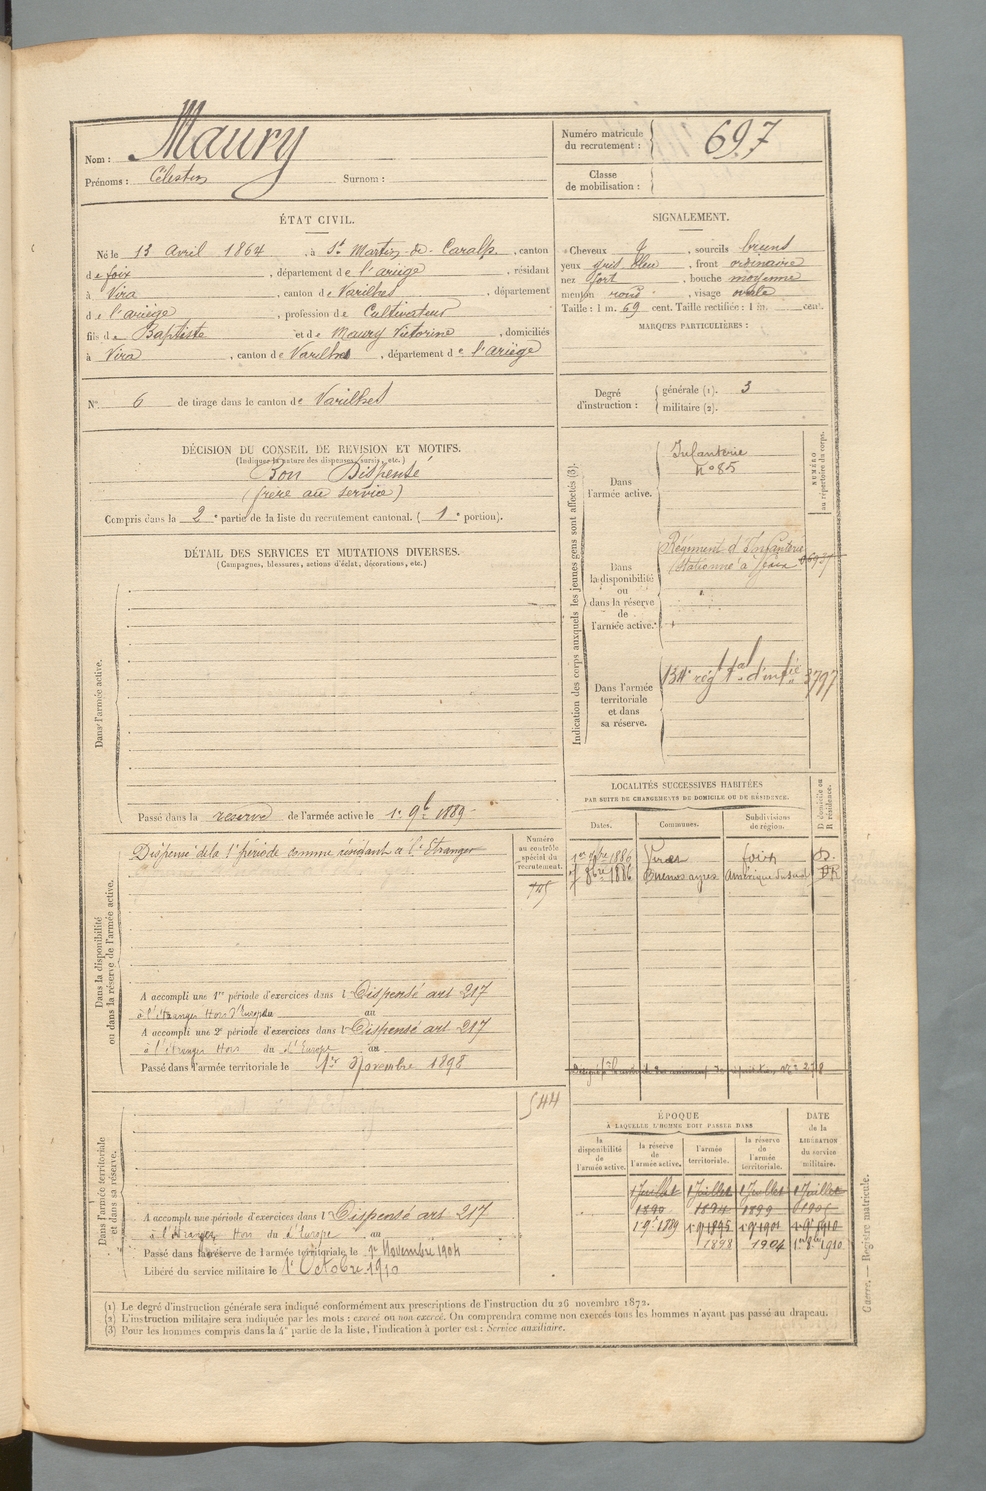 Nom : Maury
Prénoms : Célestin Surnom :
Numéro matricule du recrutement : 697
Classe de mobilisation :
ÉTAT CIVIL.
Né le 13 Avril 1864, à St Martin-de-Caralp, canton
de foix, département de l'ariège, résidant
à Vira, canton de Varilhes, département
de l'ariège, profession de Cultivateur
fils de Baptiste et de Maury Victorine, domiciliés
à Vira, canton de Varilhes, département de l'ariège
N° 6 de tirage dans le canton de Varilhes
SIGNALEMENT.
Cheveux , sourcils bruns
yeux gris bleu, front ordinaire
nez fort, bouche moyenne
menton rond, visage ovale
Taille : 1 m. 69 cent. Taille rectifiée : 1 m. cent.
MARQUES PARTICULIÈRES :
Degré d'instruction : générale (1). 3
militaire (2).
DÉCISION DU CONSEIL DE REVISION ET MOTIFS.
(Indiquer la nature des dispenses, sursis, etc.)
Bon Dispensé
(frère au service)
Compris dans la 2e partie de la liste du recrutement cantonal. (1e portion).
DÉTAIL DES SERVICES ET MUTATIONS DIVERSES.
(Campagnes, blessures, actions d'éclat, décorations, etc.)
Dans l'armée active.
Passé dans la reserve de l'armée active le 1er 9bre 1889
Indication des corps auxquels les jeunes gens sont affectés (3).
NUMÉRO au répertoire du corps.
Dans l'armée active.
Infanterie
n° 85
Dans la disponibilité ou dans la réserve de l'armée active.
Régiment d'Infanterie
Stationné à foix
Dans l'armée territoriale et dans sa réserve.
134e rég tal d'infie 3797
LOCALITÉS SUCCESSIVES HABITÉES
PAR SUITE DE CHANGEMENTS DE DOMICILE OU DE RÉSIDENCE.
D domicile ou R résidence.
Dates. Communes. Subdivisions de région.
1886 foix D.
8bre 1886 Buenos ayres Amérique du sud DR
Dans la disponibilité ou dans la réserve de l'armée active.
Numéro au contrôle spécial du recrutement.
Dispensé de la 1e période comme résidant à l'Etranger
A accompli une 1re période d'exercices dans l Dispensé art 217
à l'étranger Hors d'Europe du au
A accompli une 2e période d'exercices dans l Dispensé art 217
à l'étranger Hors du d'Europe au
Passé dans l'armée territoriale le 1er Novembre 1898
Dans l'armée territoriale et dans sa réserve.
544
A accompli une période d'exercices dans l Dispensé art 217
à l'Etranger Hors du d'Europe au
Passé dans la réserve de l'armée territoriale le 1er Novembre 1904
Libéré du service militaire le 1er Octobre 1910
ÉPOQUE
À LAQUELLE L'HOMME DOIT PASSER DANS
DATE de la LIBÉRATION du service militaire.
la disponibilité de l'armée active. la réserve de l'armée active. l'armée territoriale. la réserve de l'armée territoriale.
1 Juillet 1 Juillet 1 Juillet 1 Juillet
1890 1894 1899
1er 9e 1889 1er 9 1895 1er 9 1901 1er 9e 1910
1898 1904 1er 8bre 1910
(1) Le degré d'instruction générale sera indiqué conformément aux prescriptions de l'instruction du 26 novembre 1872.
(2) L'instruction militaire sera indiquée par les mots : exercé ou non exercé. On comprendra comme non exercés tous les hommes n'ayant pas passé au drapeau.
(3) Pour les hommes compris dans la 4e partie de la liste, l'indication à porter est : Service auxiliaire.
Guerre. — Registre matricule.